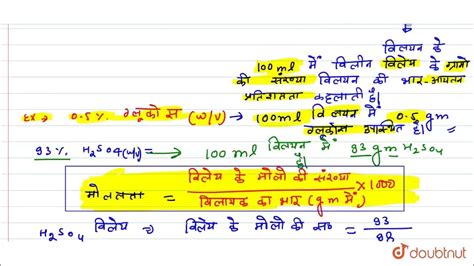 विलयन के
100 ml में विलीन विलेय के ग्रामो
की संख्या विलयन की भार-आयतन
प्रतिशतता कहलाती है।
Ex → 0.5% ग्लूकोस (w/v) → 100ml विलयन में 0.5 gm
ग्लूकोस उपस्थित है।
93% H₂SO₄(w/v) → 100 ml विलयन में 93 gm H₂SO₄
है।
मोललता = विलेय के मोलो की संख्या / विलायक का भार (gm में) × 1000
H₂SO₄ विलेय ⇒ विलेय के मोलो की सं० = 93 / 98
doubtnut